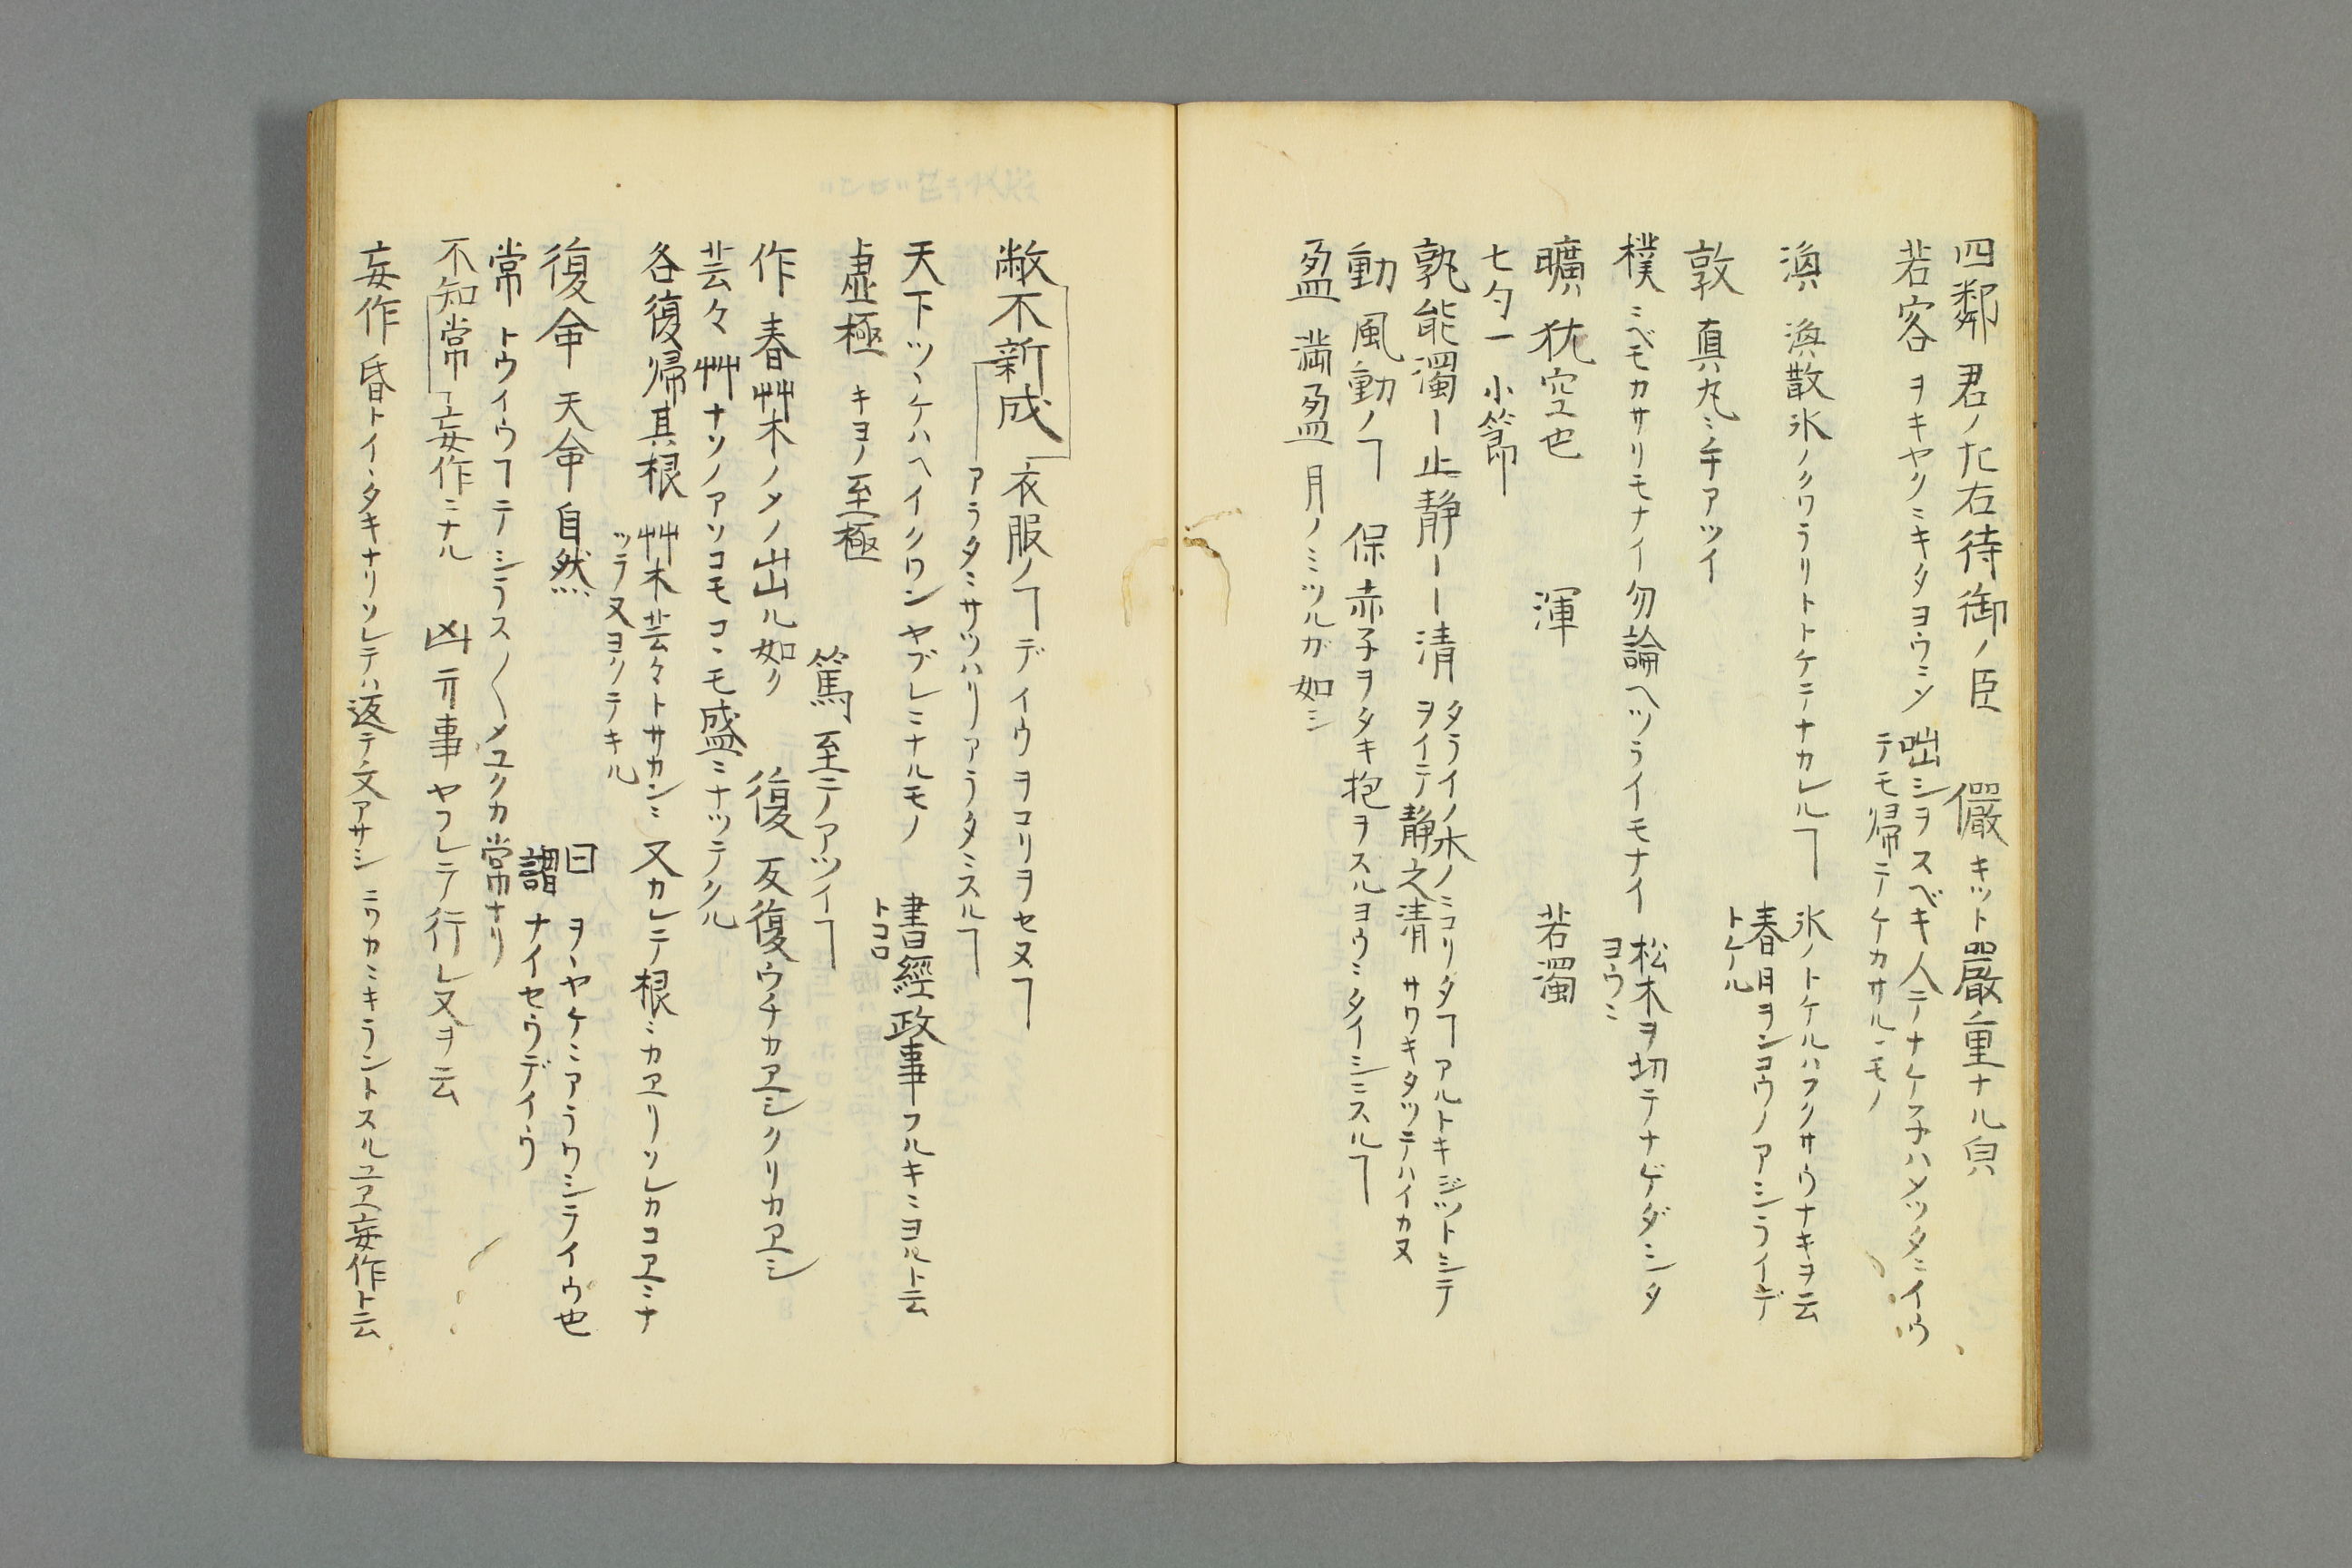 四鄰 君ノ左右待御ノ臣 儼 キット嚴重ナル皃
若客 ヲキヤクニキタヨウニシ 咄シヲスベキ人テナケネハメツタニイウ
テモ帰テケカサルヽモノ
渙 渙散氷ノクワラリトトケテナカレルヿ 氷ノトケルハフクサウナキヲ云
春日ヲンコウノアシライデ
トケル
敦 真丸ニ手アツイ
樸 ミベモカサリモナイ勿論ヘツライモナイ 松木ヲ切テナゲダシタ
ヨウニ
曠 犹空也 渾 若濁
七勺一 小節
孰能濁ー止静ーー清 タライノ水ノニコリタヿアルトキジツトシテ
ヲイテ静之清 サワキタツテハイカヌ
動 風動ノヿ 保 赤子ヲタキ抱ヲスルヨウニタイシニスルヿ
盈 滿盈 月ノミツルガ如シ
敝不新成 衣服ノヿデイウヲコリヲセヌヿ
アラタニサツハリアラタニスルヿ
天下ツヽケハヘイクワンヤブレニナルモノ 書經政事フルキニヨルト云
トコロ
虚極 キヨノ至極 篤 至テアツイヿ
作 春艸木ノメノ出ル如ク 復 反復ウチカヱシクリカヱシ
芸々 艸ナソノアソコモコヽモ盛ニナツテクル
各復帰其根 艸木芸々トサカンニ 又カレテ根ニカヱリソレカコヱニナ
ツラ又ヨクテキル
復命 天命自然 曰 ヲヽヤケニアラワシテイウ也
謂 ナイセウデイウ
常 トウイウヿテシラス〳〵メユクカ常ナリ
不知常 妄作ニナル 凶 亓事ヤフレテ行レ又ヲ云
妄作 昏トイヽタキナリソレテハ返テ文アサシ ニワカニキラントスルユヱ妄作ト云